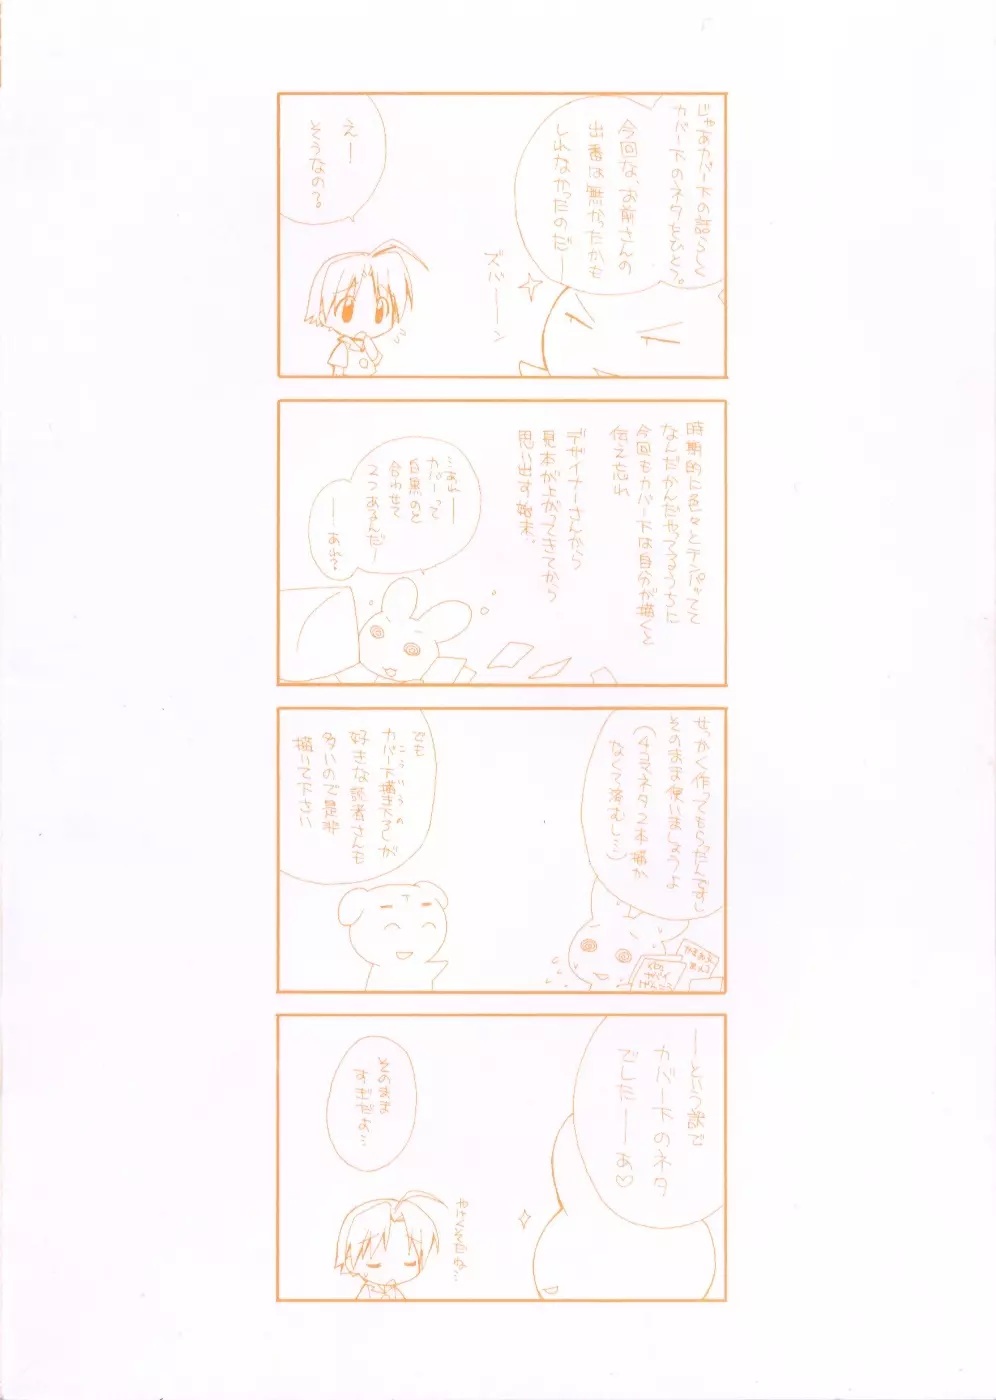 じゃあカバー下の話らしく
カバー下のネタをひとつ。
今回な、お前さんの
出番は無かったかも
しれなかったのだー
ズバーーン
えー
そうなの?。
時期的に色々とテンパッてて
なんだかんだやってるうちに
今回もカバー下は自分が描くと
伝え忘れ
デザイナーさんから
見本が上がってきてから
思い出す始末…
…あれー
カバーって
白黒のと
合わせて
2つあるんだー
ーーあれ?
せっかく作ってもらったんですし
そのまま使いましょうよ
(4コマネタ2本描か
なくて済むし…)
でも
こういうの
カバー下描き下ろしが
好きな読者さんも
多いので是非
描いて下さい
ーーという訳で
カバー下のネタ
でしたーーあ♡
そのまま
すぎだよ…